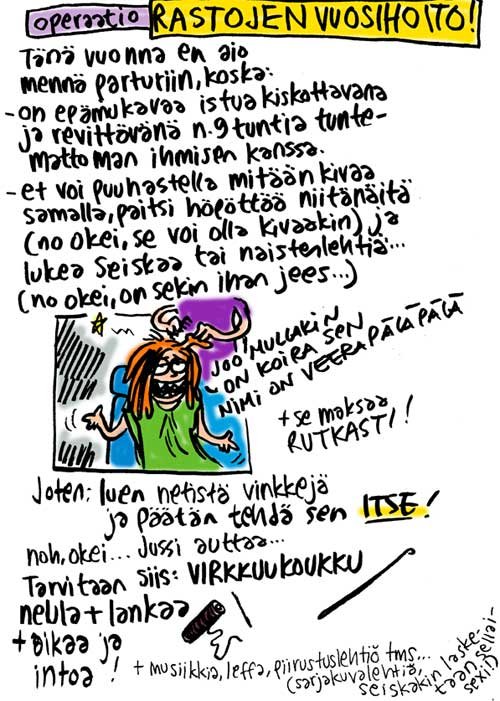 operaatio RASTOJEN VUOSIHOITO!
Tänä vuonna en aio
mennä parturiin, koska:
- on epämukavaa istua kiskottavana
ja revittävänä n. 9 tuntia tunte-
mattoman ihmisen kanssa.
- et voi puuhastella mitään kivaa
samalla, paitsi höpöttää niitänäitä
(no okei, se voi olla kivaakin) ja
lukea seiskaa tai naistenlehtiä...
(no okei, on sekin ihan jees...)
JOO MULLAKIN
ON KOIRA SEN
NIMI ON VEERA PÄLÄPÄLÄ
+ se maksaa
RUTKASTI!
Joten: luen netistä vinkkejä
ja päätän tehdä sen ITSE!
noh, okei... Jussi auttaa...
Tarvitaan siis: VIRKKUUKOUKKU
neula + lankaa
+ aikaa ja
intoa!
+ musiikkia, leffa, piirustuslehtiö tms...
(sarjakuvalehtiä,
seiskakin laske-
taan sellai-
sexi!)